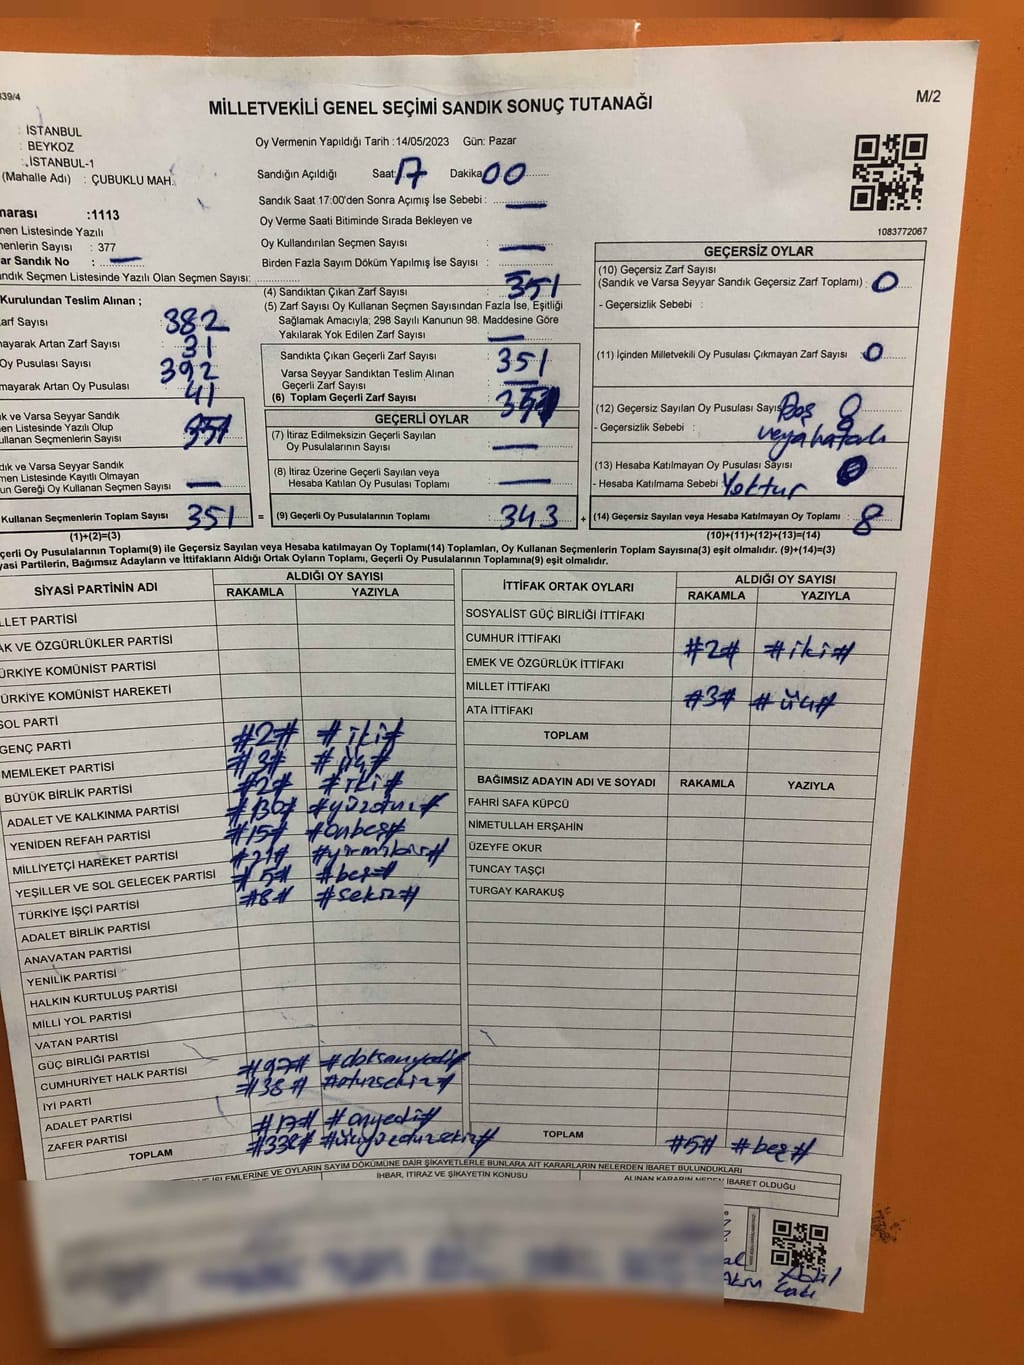 339/4
MİLLETVEKİLİ GENEL SEÇİMİ SANDIK SONUÇ TUTANAĞI
M/2
: İSTANBUL
: BEYKOZ
: İSTANBUL-1
(Mahalle Adı) : ÇUBUKLU MAH.
Oy Vermenin Yapıldığı Tarih : 14/05/2023 Gün: Pazar
Sandığın Açıldığı Saat: 17 Dakika 00
Sandık Saat 17:00'den Sonra Açımış İse Sebebi : —
Oy Verme Saati Bitiminde Sırada Bekleyen ve
Oy Kullandırılan Seçmen Sayısı : —
Birden Fazla Sayım Döküm Yapılmış İse Sayısı : —
1083772067
marası :1113
men Listesinde Yazılı
menlerin Sayısı : 377
ar Sandık No : —
ndık Seçmen Listesinde Yazılı Olan Seçmen Sayısı:
Kurulundan Teslim Alınan ;
arf Sayısı 382
mayarak Artan Zarf Sayısı : 31
Oy Pusulası Sayısı 392
mayarak Artan Oy Pusulası 41
ık ve Varsa Seyyar Sandık
en Listesinde Yazılı Olup
ullanan Seçmenlerin Sayısı : 351
dık ve Varsa Seyyar Sandık
en Listesinde Kayıtlı Olmayan
un Gereği Oy Kullanan Seçmen Sayısı : —
Kullanan Seçmenlerin Toplam Sayısı : 351 =
(1)+(2)=(3)
(4) Sandıktan Çıkan Zarf Sayısı : 351
(5) Zarf Sayısı Oy Kullanan Seçmen Sayısından Fazla İse, Eşitliği
Sağlamak Amacıyla; 298 Sayılı Kanunun 98. Maddesine Göre
Yakılarak Yok Edilen Zarf Sayısı : —
Sandıkta Çıkan Geçerli Zarf Sayısı : 351
Varsa Seyyar Sandıktan Teslim Alınan
Geçerli Zarf Sayısı : —
(6) Toplam Geçerli Zarf Sayısı : 351
GEÇERLİ OYLAR
(7) İtiraz Edilmeksizin Geçerli Sayılan
Oy Pusulalarının Sayısı : —
(8) İtiraz Üzerine Geçerli Sayılan veya
Hesaba Katılan Oy Pusulası Toplamı : —
(9) Geçerli Oy Pusulalarının Toplamı : 343 +
GEÇERSİZ OYLAR
(10) Geçersiz Zarf Sayısı
(Sandık ve Varsa Seyyar Sandık Geçersiz Zarf Toplamı) : 0
- Geçersizlik Sebebi :
(11) İçinden Milletvekili Oy Pusulası Çıkmayan Zarf Sayısı : 0
(12) Geçersiz Sayılan Oy Pusulası Sayısı : 8
- Geçersizlik Sebebi : Boş veya hatalı
(13) Hesaba Katılmayan Oy Pusulası Sayısı
- Hesaba Katılmama Sebebi Yoktur
(14) Geçersiz Sayılan veya Hesaba Katılmayan Oy Toplamı : 8
(10)+(11)+(12)+(13)=(14)
çerli Oy Pusulalarının Toplamı(9) ile Geçersiz Sayılan veya Hesaba katılmayan Oy Toplamı(14) Toplamları, Oy Kullanan Seçmenlerin Toplam Sayısına(3) eşit olmalıdır. (9)+(14)=(3)
yasi Partilerin, Bağımsız Adayların ve İttifakların Aldığı Ortak Oyların Toplamı, Geçerli Oy Pusulalarının Toplamına(9) eşit olmalıdır.
SİYASİ PARTİNİN ADI ALDIĞI OY SAYISI
RAKAMLA YAZIYLA
LLET PARTİSİ
AK VE ÖZGÜRLÜKLER PARTİSİ
ÜRKİYE KOMÜNİST PARTİSİ
ÜRKİYE KOMÜNİST HAREKETİ
SOL PARTİ
GENÇ PARTİ #2# #iki#
MEMLEKET PARTİSİ #3# #üç#
BÜYÜK BİRLİK PARTİSİ #2# #iki#
ADALET VE KALKINMA PARTİSİ #130# #yüzotuz#
YENİDEN REFAH PARTİSİ #15# #onbeş#
MİLLİYETÇİ HAREKET PARTİSİ #21# #yirmibir#
YEŞİLLER VE SOL GELECEK PARTİSİ #5# #beş#
TÜRKİYE İŞÇİ PARTİSİ #8# #sekiz#
ADALET BİRLİK PARTİSİ
ANAVATAN PARTİSİ
YENİLİK PARTİSİ
HALKIN KURTULUŞ PARTİSİ
MİLLİ YOL PARTİSİ
VATAN PARTİSİ
GÜÇ BİRLİĞİ PARTİSİ
CUMHURİYET HALK PARTİSİ #97# #doksanyedi#
İYİ PARTİ #38# #otuzsekiz#
ADALET PARTİSİ
ZAFER PARTİSİ #17# #onyedi#
TOPLAM #338# #üçyüzotuzsekiz#
İTTİFAK ORTAK OYLARI ALDIĞI OY SAYISI
RAKAMLA YAZIYLA
SOSYALİST GÜÇ BİRLİĞİ İTTİFAKI
CUMHUR İTTİFAKI #2# #iki#
EMEK VE ÖZGÜRLÜK İTTİFAKI
MİLLET İTTİFAKI #3# #üç#
ATA İTTİFAKI
TOPLAM
BAĞIMSIZ ADAYIN ADI VE SOYADI RAKAMLA YAZIYLA
FAHRİ SAFA KÜPCÜ
NİMETULLAH ERŞAHİN
ÜZEYFE OKUR
TUNCAY TAŞÇI
TURGAY KARAKUŞ
TOPLAM #5# #beş#
İŞLEMLERİNE VE OYLARIN SAYIM DÖKÜMÜNE DAİR ŞİKAYETLERLE BUNLARA AİT KARARLARIN NELERDEN İBARET BULUNDUKLARI
İHBAR, İTİRAZ VE ŞİKAYETİN KONUSU ALINAN KARARIN NEDEN İBARET OLDUĞU